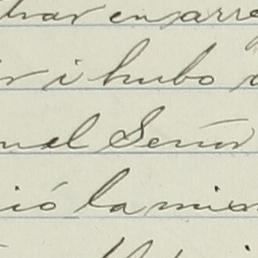 trar en arre
ir i hubo
ual Señor
ió la mis